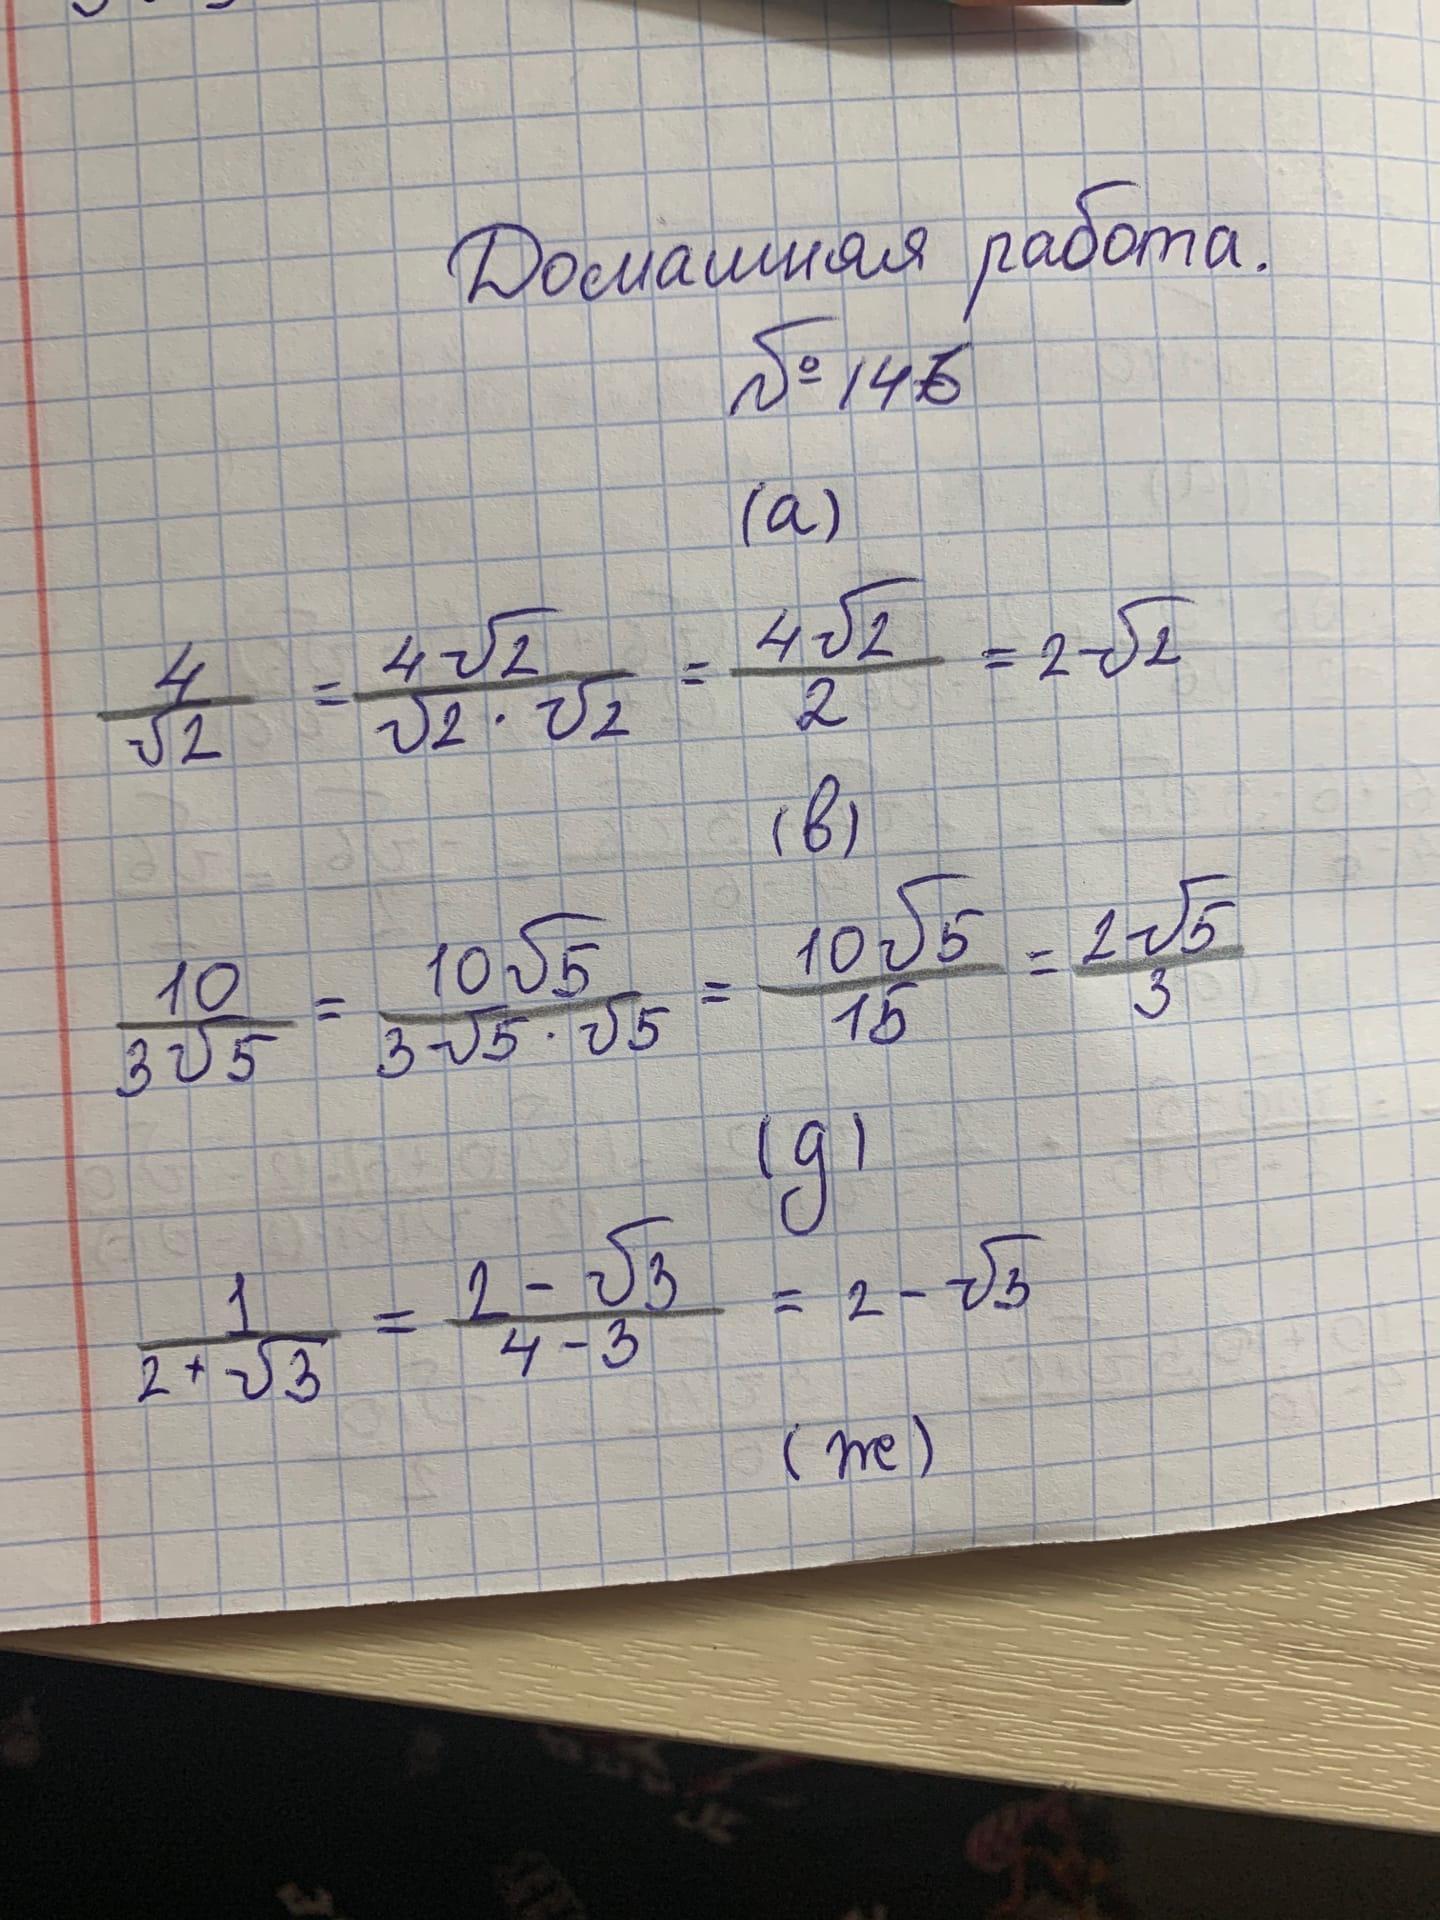 Домашняя работа.
№ 146
(а)
4/√2 = 4√2/(√2 · √2) = 4√2/2 = 2√2
(в)
10/(3√5) = 10√5/(3√5 · √5) = 10√5/15 = 2√5/3
(д)
1/(2+√3) = (2-√3)/(4-3) = 2-√3
(ж)